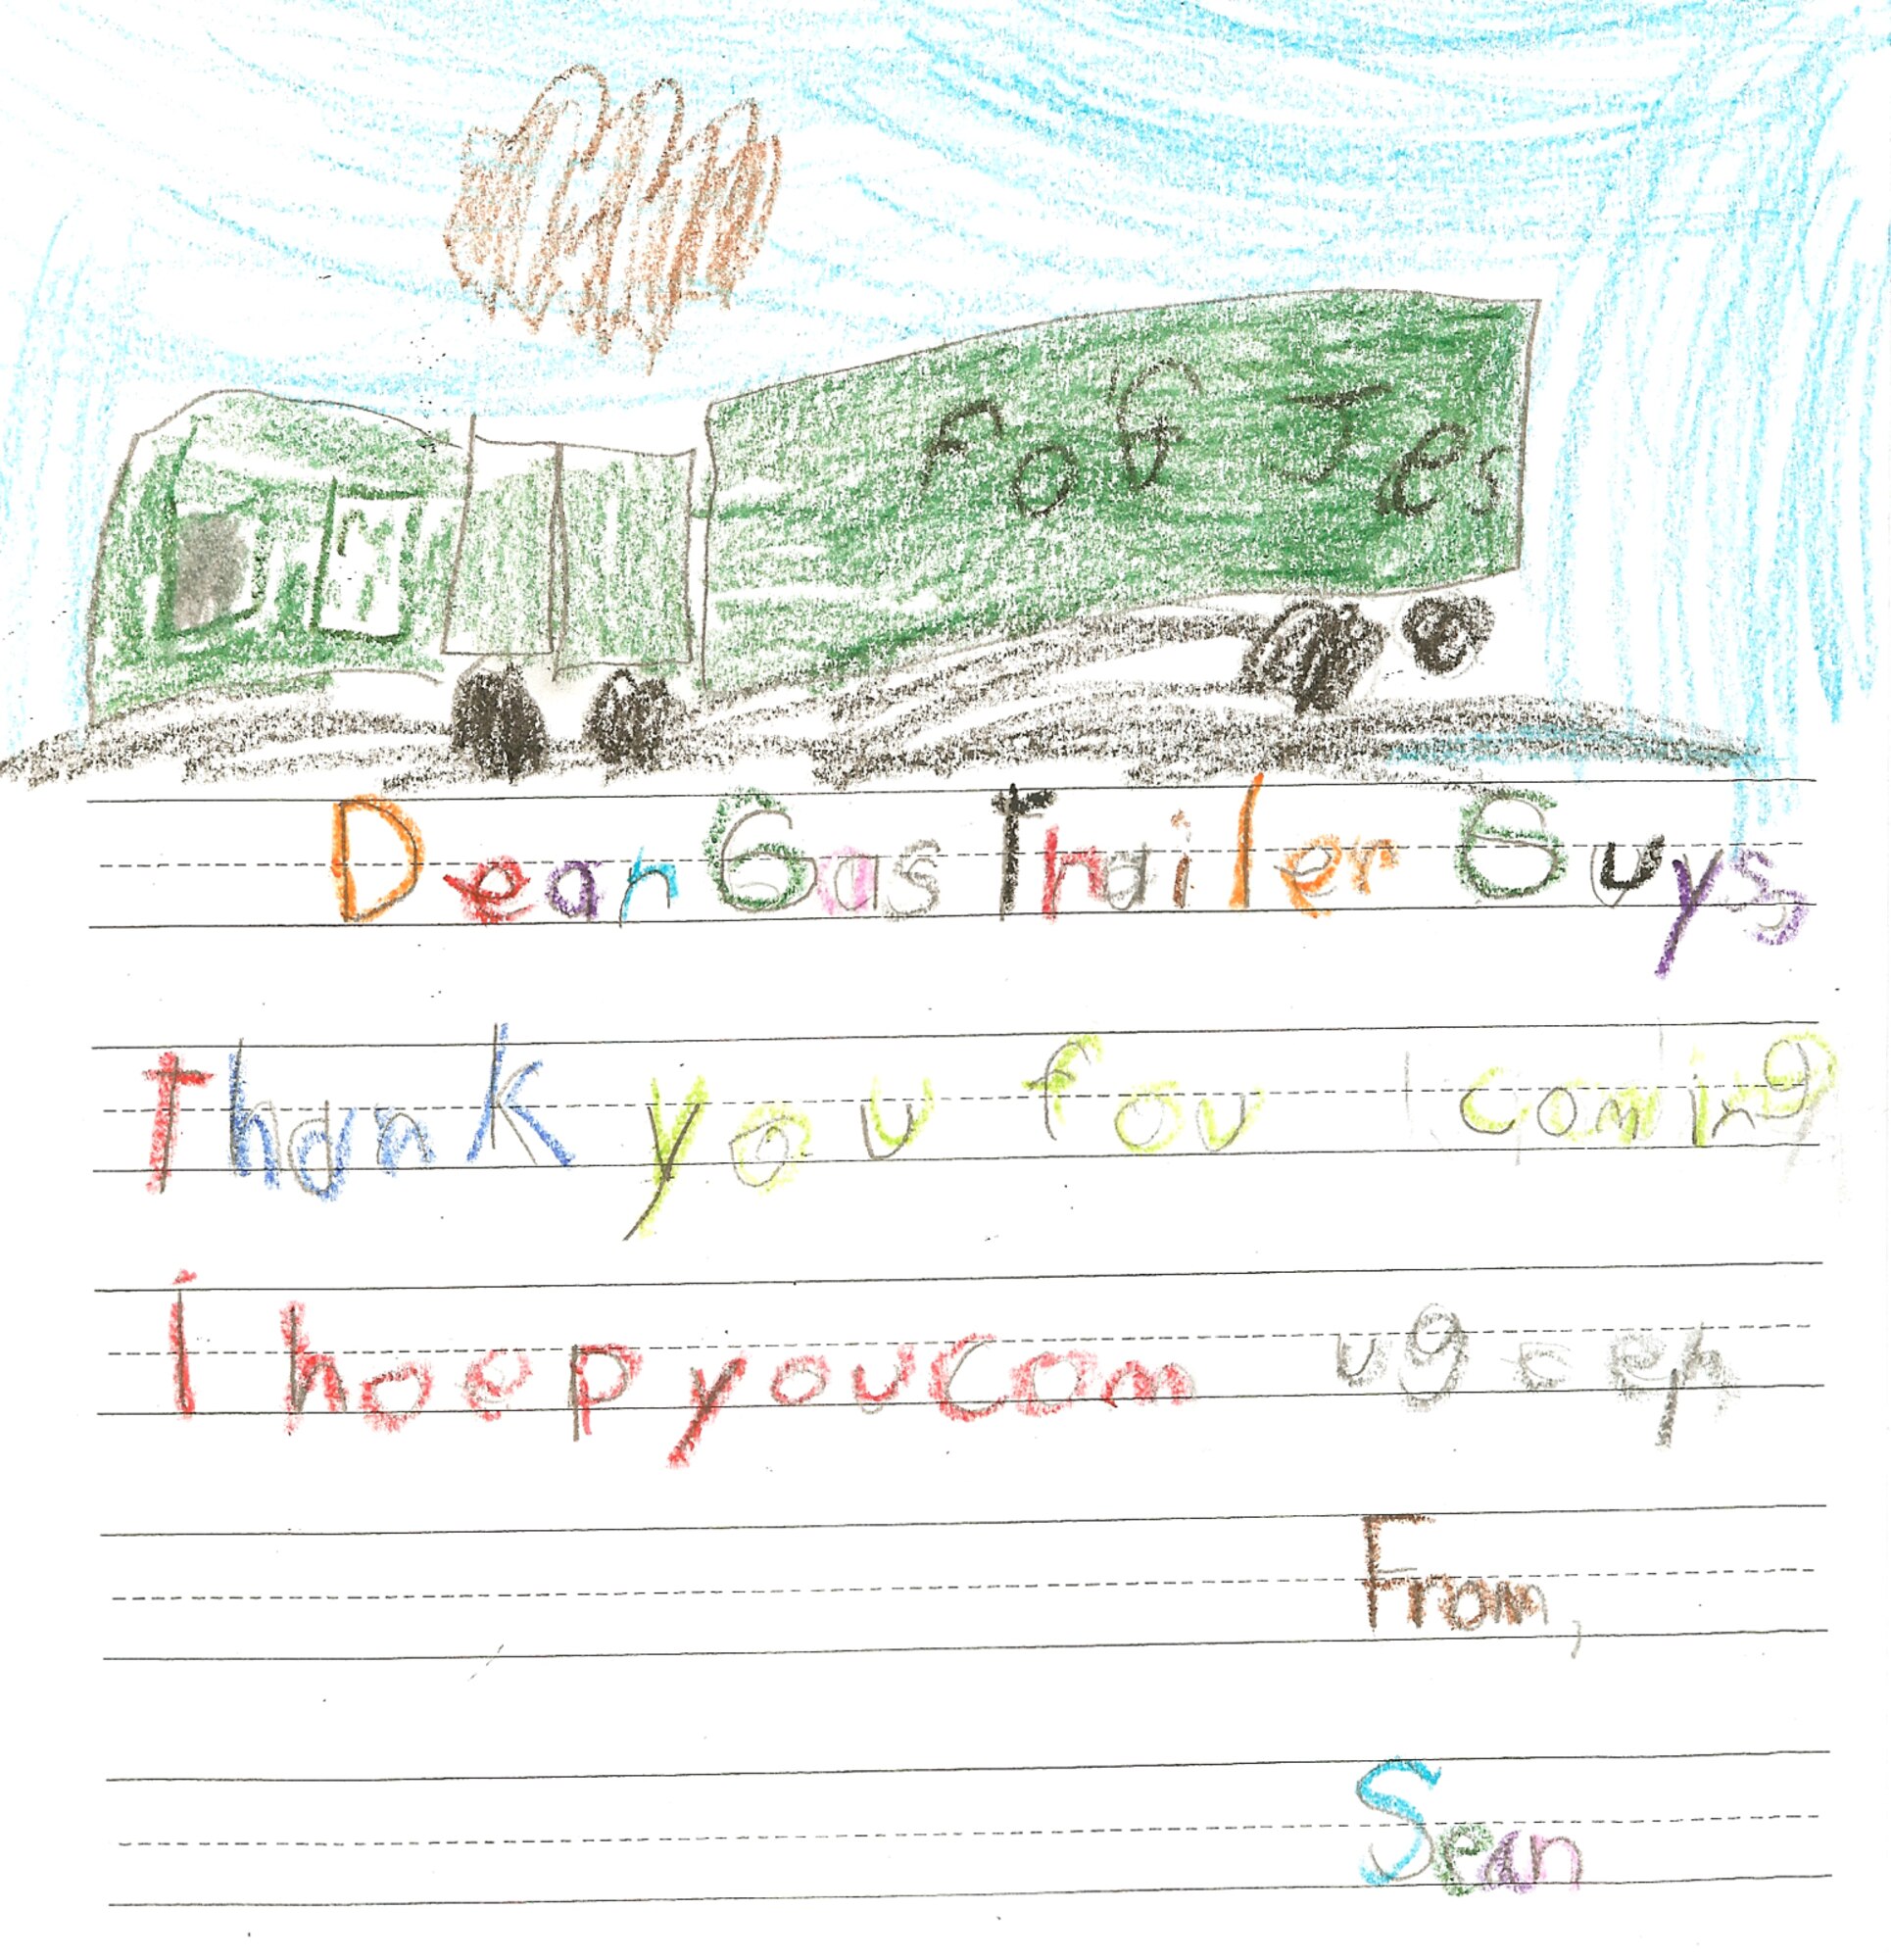 FoG Jes
Dear Gas Trailer Guys
Thank you fou coming
i hoep you com ug sen
From,
Sean